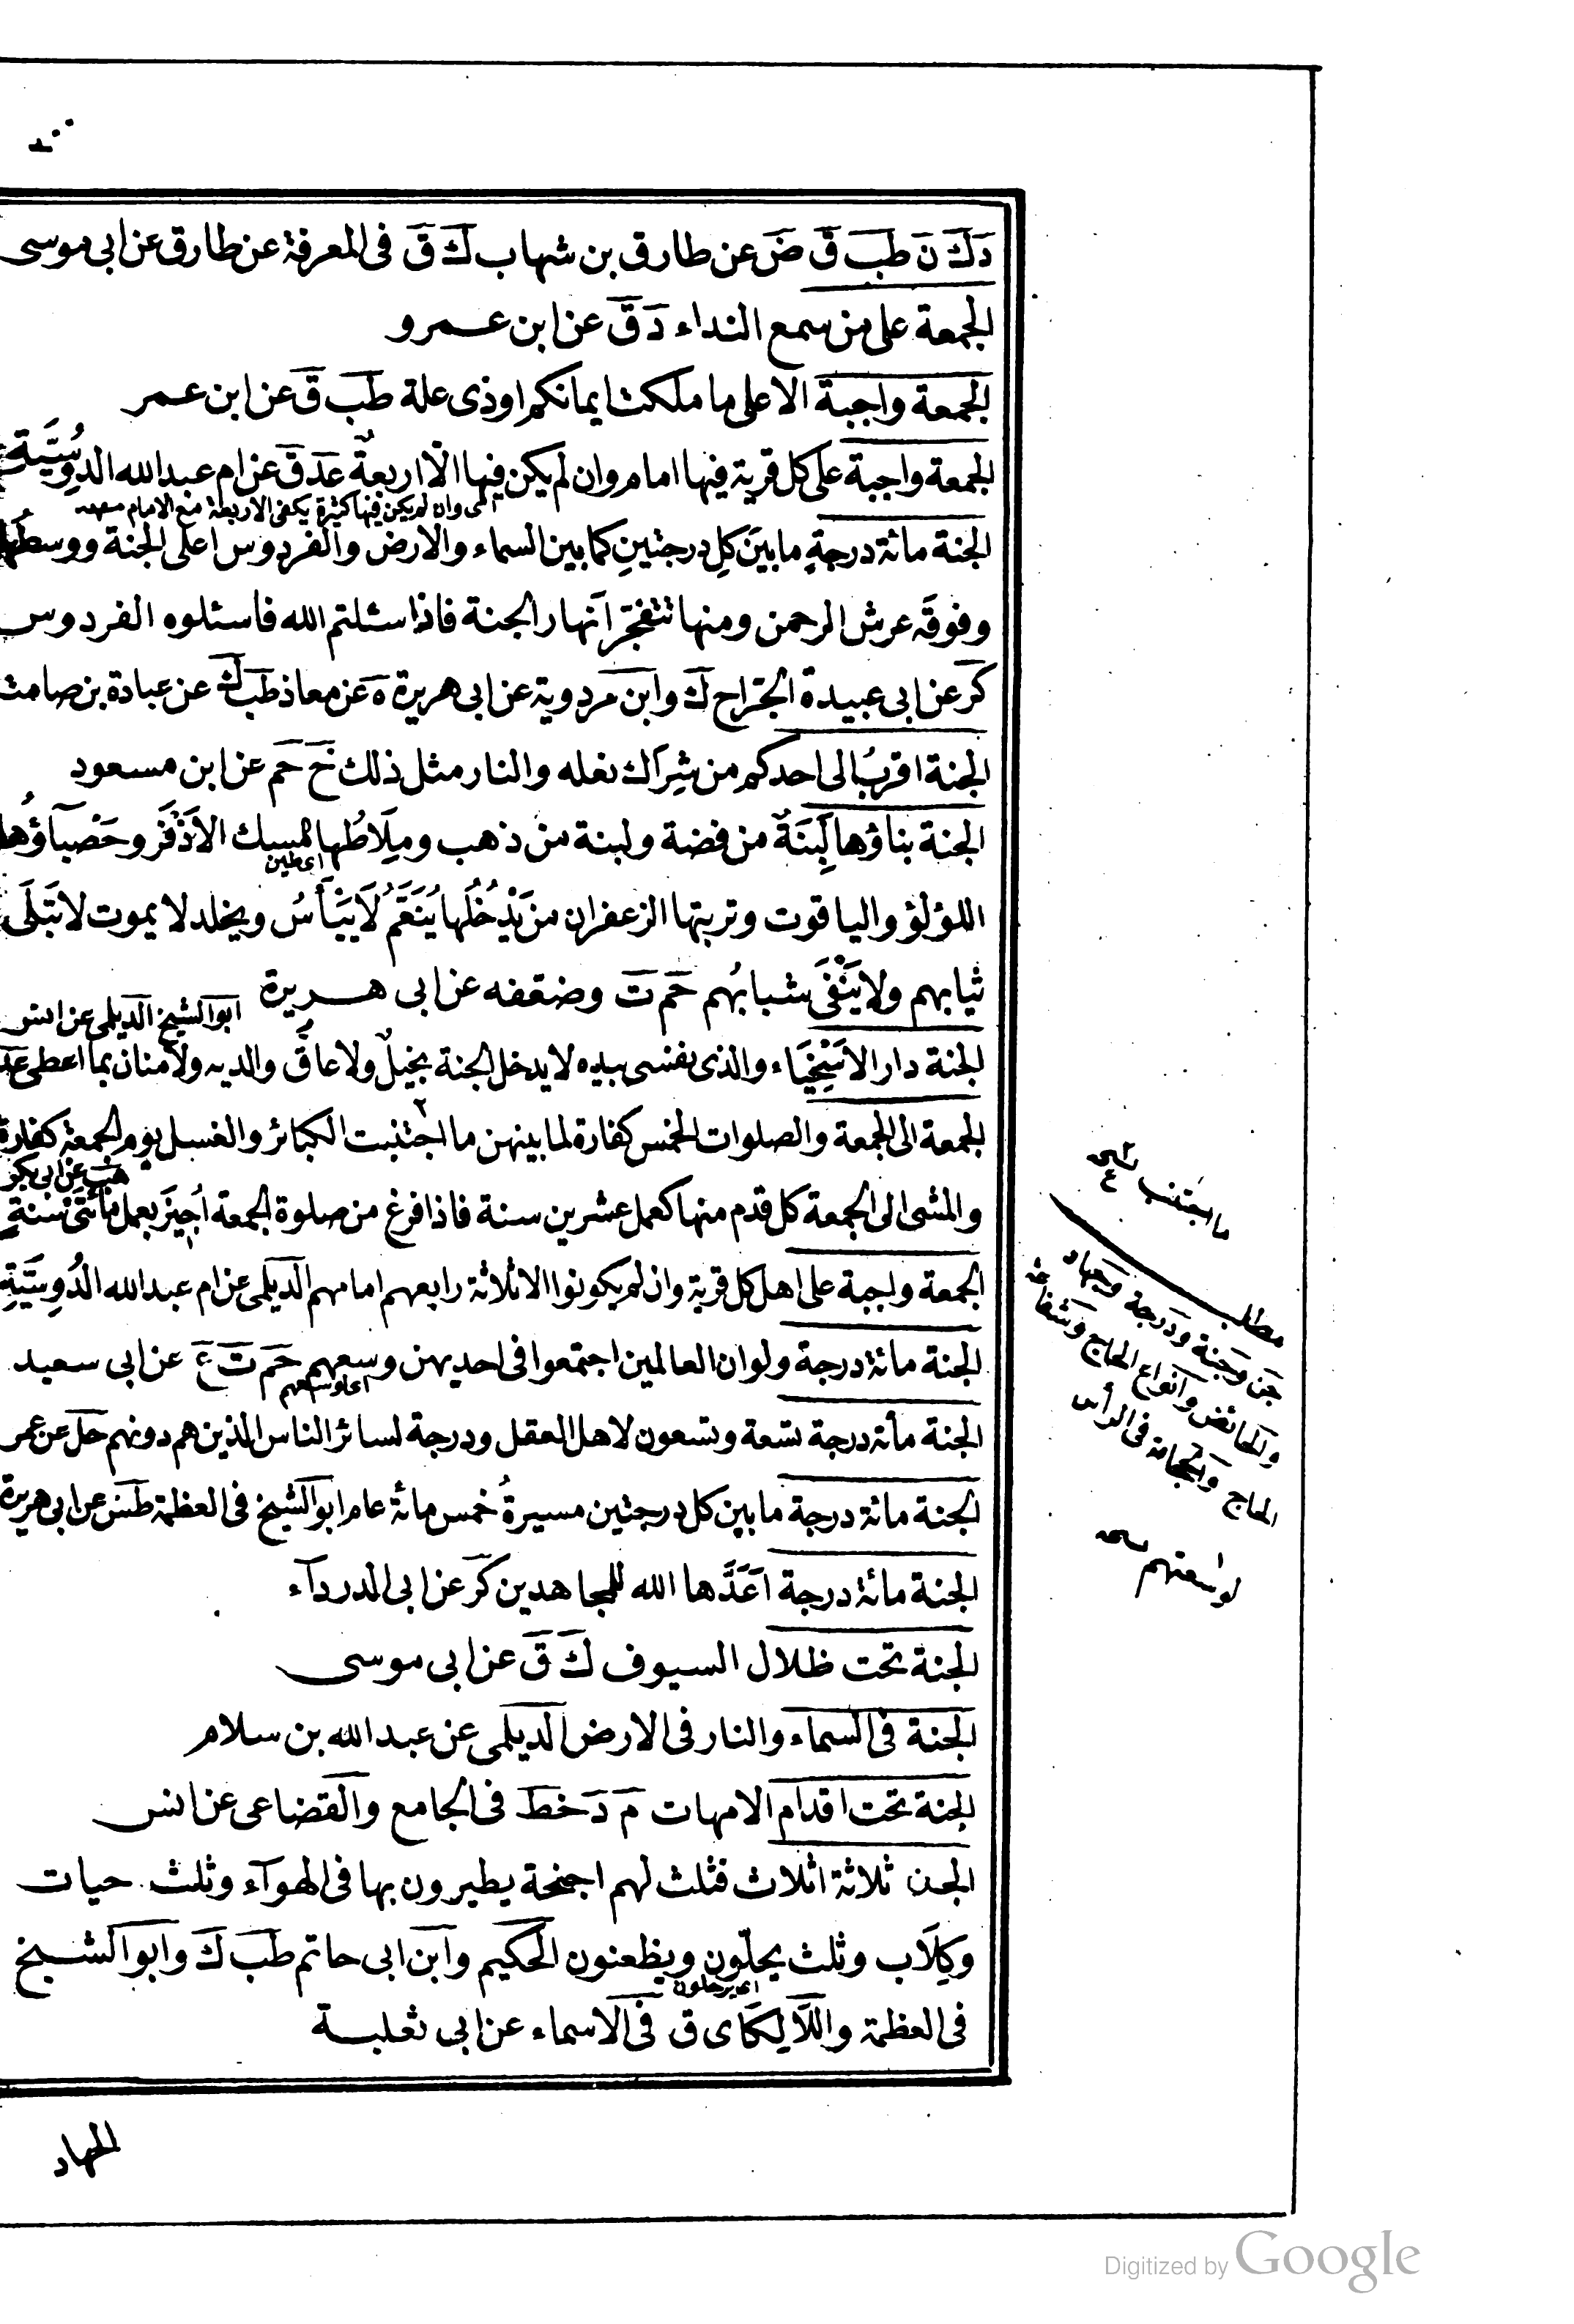 دَكَ نَ طَبَ قَ ضَ عن طارق بن شهاب كَ قَ فى المعرفة عن طارق عن ابى موسى
الجمعة على من سمع النداء دَ قَ عن ابن عمرو
الجمعة واجبة الا على ما ملكت ايمانكم او ذى علة طَبَ قَ عن ابن عمر
الجمعة واجبة على كل قرية فيها امام وان لم يكن فيها الّا اربعةٌ عَد قَ عن ام عبد الله الدوسية
اى وان لم يكن فيها كثيرة يكفى الاربعة مع الامام
الجنة مائة درجةٍ ما بينَ كلِ درجتينِ كما بين السماء والارض والفردوس اعلى الجنة ووسطُها
وفوقَه عرش الرحمن ومنها تتفجّر انهار الجنة فاذا سئلتم الله فاسئلوه الفردوس
كَر عن ابى عبيدة الجّراح كَ وابن مردوية عن ابى هريرة هَ عن معاذ طَبَ كَ عن عبادة بن صامت
الجنة اقربُ الى احدكم من شِراك نعله والنار مثل ذلك خَ حَم عن ابن مسعود
الجنة بناؤها لَبِنَةٌ من فضة ولبنة من ذهب ومِلَاطُها المسك الاَذْفَر وحَصْباؤُها
اى طين
اللؤلؤ والياقوت وتربتها الزعفران من يَدْخُلُها يُنَعَّمُ لَا يَيْأَسُ ويخلد لا يموت لا تَبْلَى
ثيابهم ولا يَفْنَى شبابُهم حَم تَ وضعفه عن ابى هريرة
ابو الشيخ الديلمى عن انس
الجنة دار الاَسْخِيَاء والذى نفسى بيده لا يدخل الجنة بخيلٌ ولا عاقٌّ والديه ولا منان بما اعطى عَد
الجمعة الى الجمعة والصلوات الخمس كفارة لما بينهن ما اجتنبت الكبائر والغسل يوم الجمعة كفارة
هَب عن ابى بكر
والمشى الى الجمعة كل قدم منها كعمل عشرين سنة فاذا فرغ من صلوة الجمعة اُجِيزَ بعمل مأتَىْ سَنةٍ
الجمعة واجبة على اهل كل قرية وان لم يكونوا الا ثلاثة رابعهم امامهم الديلمى عن ام عبد الله الدُوسِيَّةِ
الجنة مائة درجة ولو ان العالمين اجتمعوا فى احديهن وسعهم حَم تَ عَ عن ابى سعيد
الجنة مأة درجة تسعة وتسعون لاهل العقل ودرجة لسائر الناس الذين هم دونهم حَل عن عمر
الجنة مائة درجة ما بين كل درجتين مسيرةُ خمس مائة عام ابو الشيخ فى العظمة طَس عن ابى هريرة
الجنة مائة درجة اَعَدَّها الله للمجاهدين كَر عن ابى الدرداء
الجنة تحت ظلال السيوف كَ قَ عن ابى موسى
الجنة فى السماء والنار فى الارض الديلمى عن عبد الله بن سلام
الجنة تحت اقدام الامهات مَ دَ خَط فى الجامع والقضاعى عن انس
الجن ثلاثة اثلاث فثلث لهم اجنحة يطيرون بها فى الهوآء وثلث حيات
وكِلَاب وثلث يحلّون ويظعنون الحكيم وابن ابى حاتم طَبَ كَ وابو الشيخ
اى يرحلون
فى العظمة واللَّالِكَاى ق فى الاسماء عن ابى ثعلبة
ما يجتنب
مطلب
جن وجنة ودرجة وجهاد
والحائض وانواع الحاج وشفاعة
الحاج والحجامة فى الرأس
لوسعتهم
الجهاد
Digitized by Google